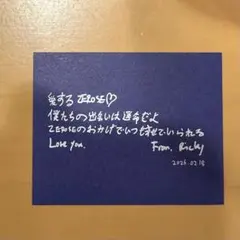 愛する ZEROSE♡
僕たちの出会いは運命だよ
ZEROSEのおかげでいつも幸せでいられる
Love you.     From. Ricky
2025.02.18